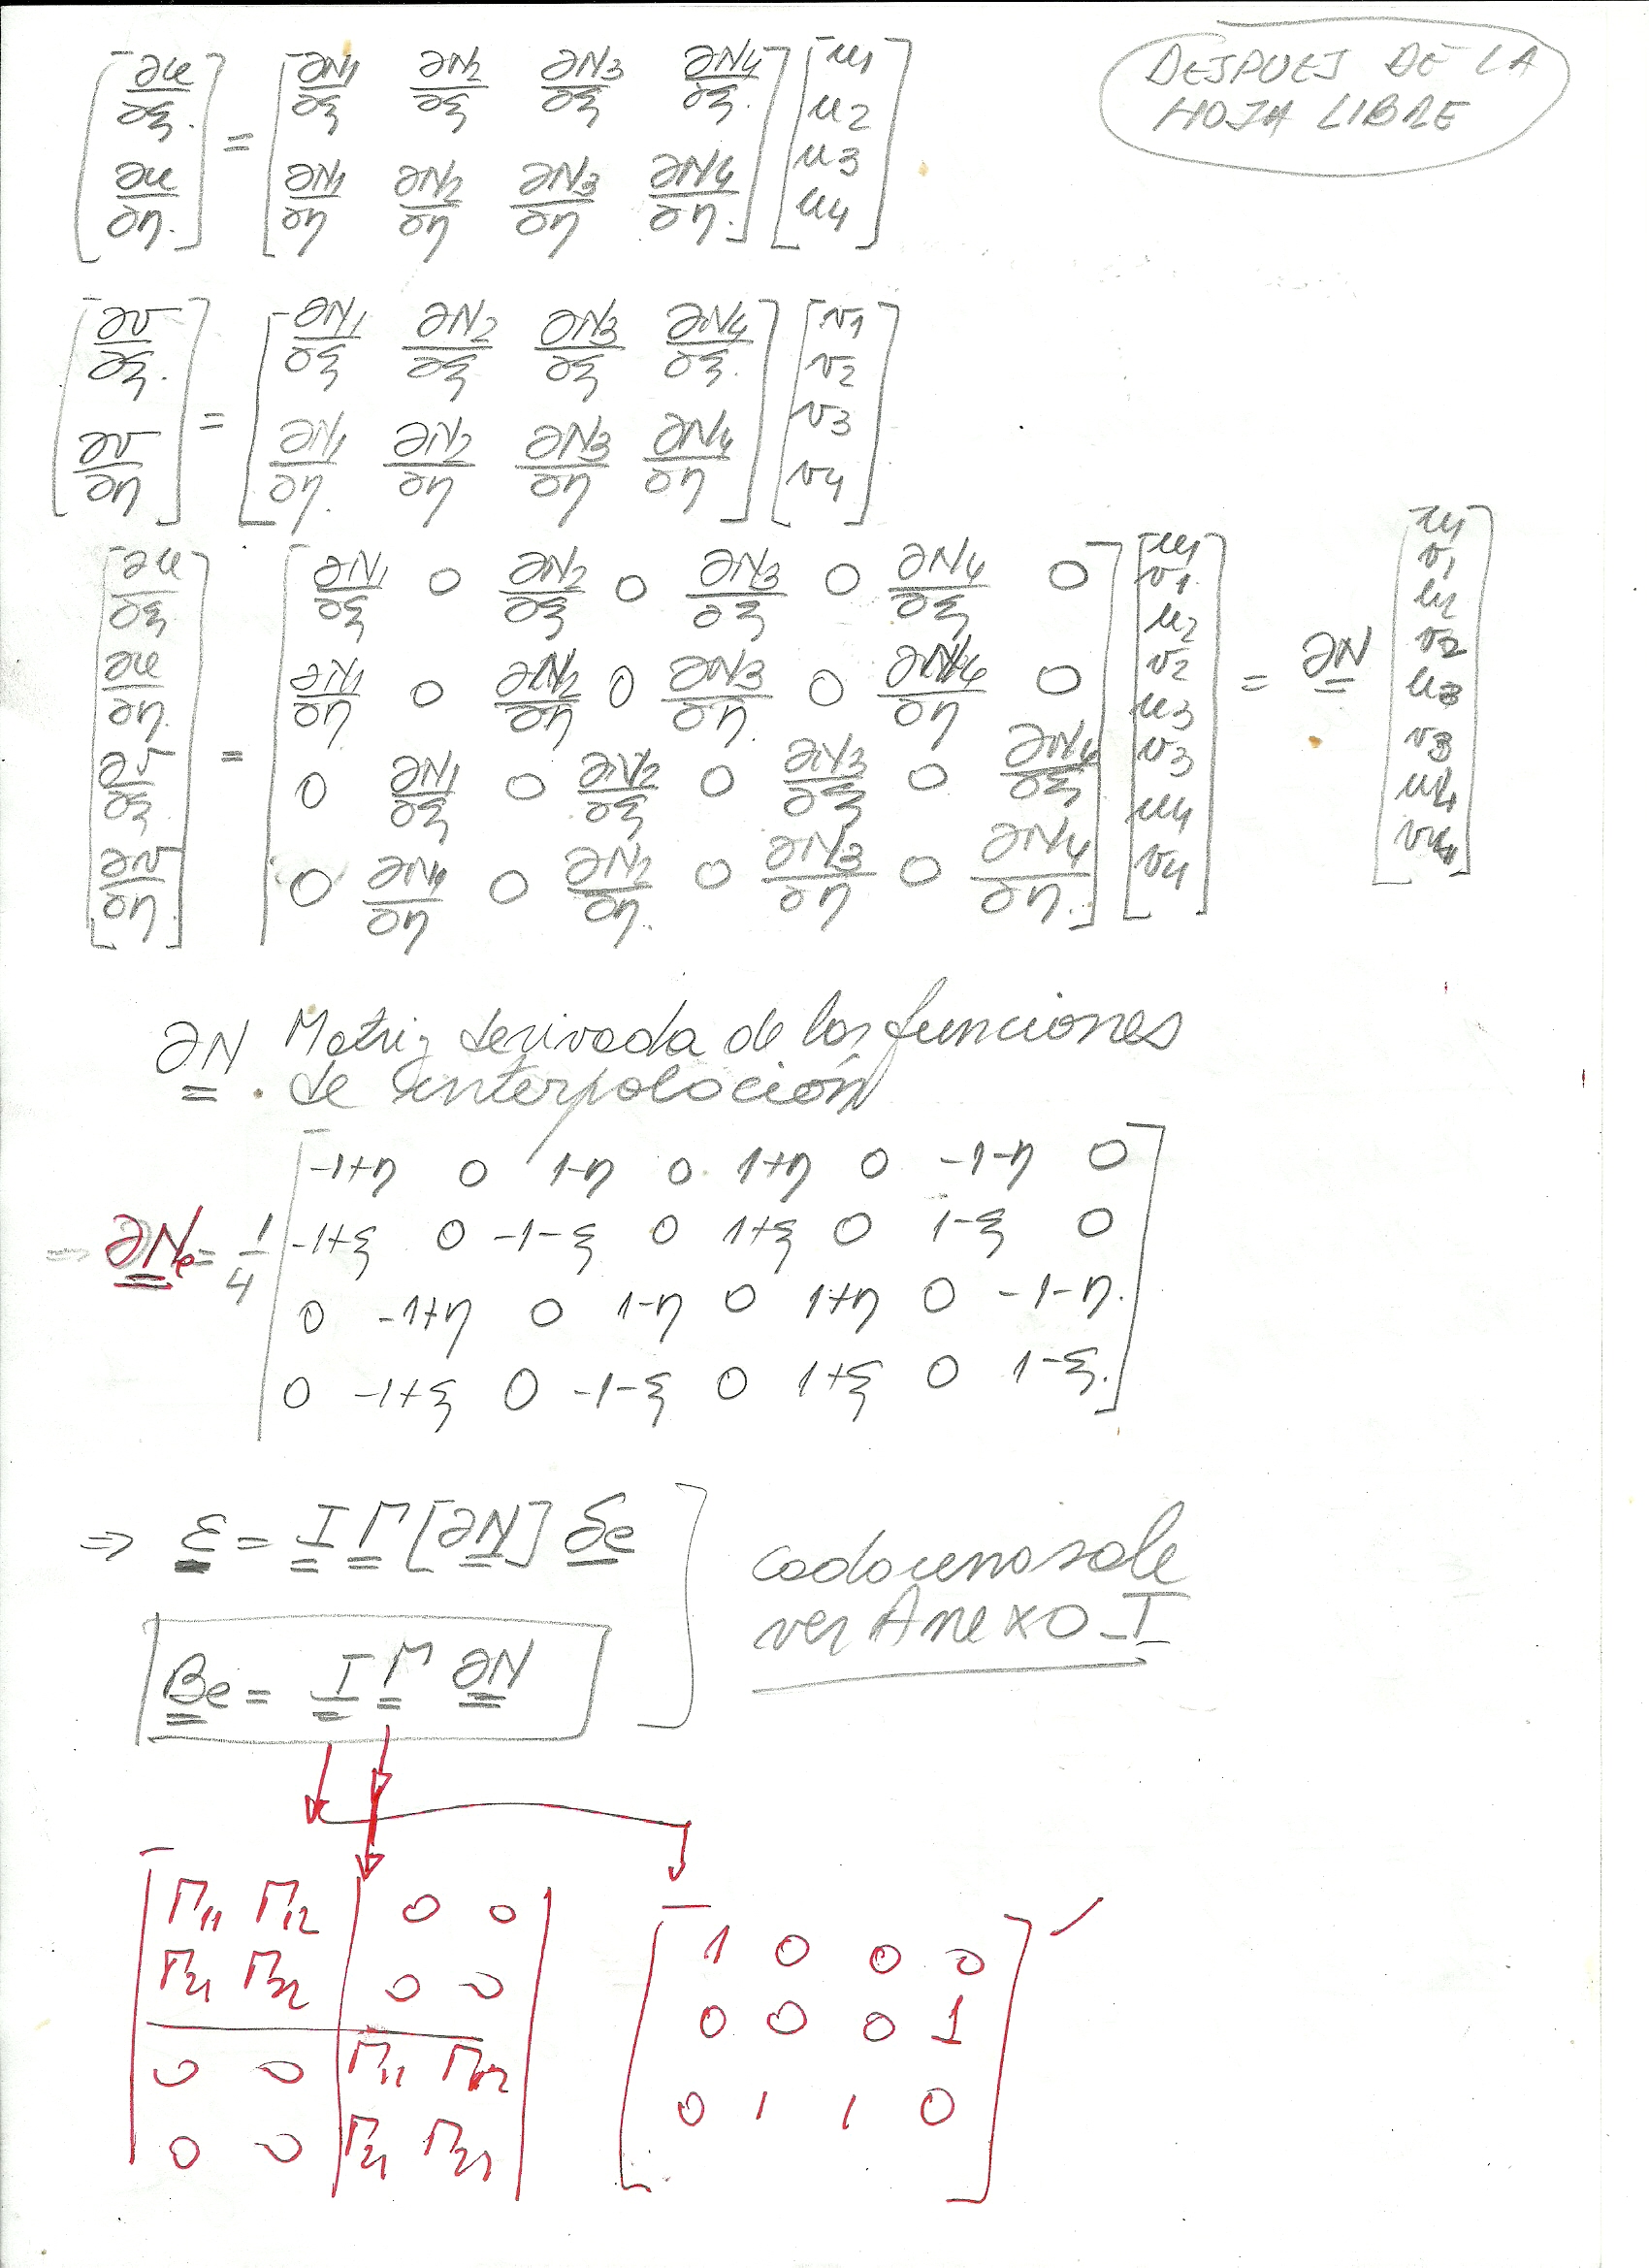 DESPUES DE LA
HOJA LIBRE
[∂u/∂ξ ; ∂u/∂η] = [∂N1/∂ξ ∂N2/∂ξ ∂N3/∂ξ ∂N4/∂ξ ; ∂N1/∂η ∂N2/∂η ∂N3/∂η ∂N4/∂η] [u1 ; u2 ; u3 ; u4]
[∂v/∂ξ ; ∂v/∂η] = [∂N1/∂ξ ∂N2/∂ξ ∂N3/∂ξ ∂N4/∂ξ ; ∂N1/∂η ∂N2/∂η ∂N3/∂η ∂N4/∂η] [v1 ; v2 ; v3 ; v4]
[∂u/∂ξ ; ∂u/∂η ; ∂v/∂ξ ; ∂v/∂η] = [∂N1/∂ξ 0 ∂N2/∂ξ 0 ∂N3/∂ξ 0 ∂N4/∂ξ 0 ; ∂N1/∂η 0 ∂N2/∂η 0 ∂N3/∂η 0 ∂N4/∂η 0 ; 0 ∂N1/∂ξ 0 ∂N2/∂ξ 0 ∂N3/∂ξ 0 ∂N4/∂ξ ; 0 ∂N1/∂η 0 ∂N2/∂η 0 ∂N3/∂η 0 ∂N4/∂η] [u1 ; v1 ; u2 ; v2 ; u3 ; v3 ; u4 ; v4] = ∂N [u1 ; v1 ; u2 ; v2 ; u3 ; v3 ; u4 ; v4]
∂N Matriz derivada de las funciones
de interpolación
⇒ ∂Ne = 1/4 [-1+η 0 1-η 0 1+η 0 -1-η 0
-1+ξ 0 -1-ξ 0 1+ξ 0 1-ξ 0
0 -1+η 0 1-η 0 1+η 0 -1-η
0 -1+ξ 0 -1-ξ 0 1+ξ 0 1-ξ]
⇒ ε = I Γ [∂N] δe
cada una sale
ver Anexo I
Be = I Γ ∂N
Γ11 Γ12 0 0
Γ21 Γ22 0 0
0 0 Γ11 Γ12
0 0 Γ21 Γ22
1 0 0 0
0 0 0 1
0 1 1 0